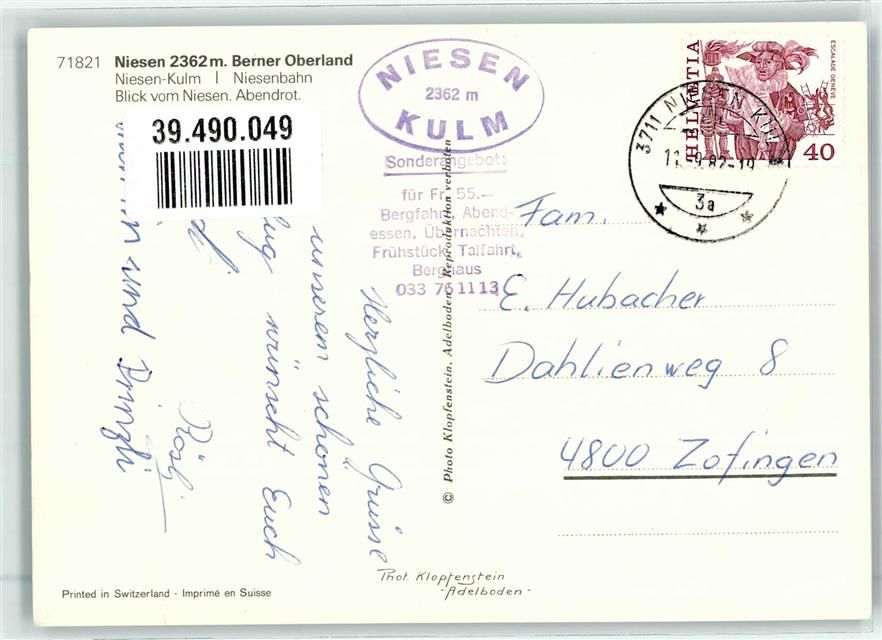 71821 Niesen 2362 m. Berner Oberland
Niesen-Kulm | Niesenbahn
Blick vom Niesen. Abendrot.
39.490.049
NIESEN
2362 m
KULM
Sonderangebot:
für Fr. 55.—
Bergfahrt, Abend-
essen, Übernachten,
Frühstück, Talfahrt,
Berghaus
033 76 11 13
HELVETIA
ESCALADE GENÈVE
40
3711 NIESEN KULM
9.82-19
3a
Herzliche Grüsse
unserem schönen
wünscht Euch
Rösli
und
© Photo Klopfenstein. Adelboden. Reproduktion verboten
Fam.
E. Hubacher
Dahlienweg 8
4800 Zofingen
Phot. Klopfenstein
- Adelboden -
Printed in Switzerland - Imprimé en Suisse